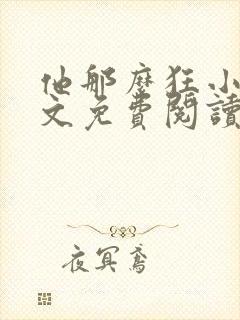 他那麼狂小
文免費閱讀
夜冥鳶